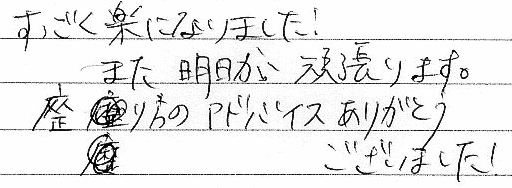 すごく楽になりました!
また明日から頑張ります。
座り方のアドバイスありがとう
ございました!